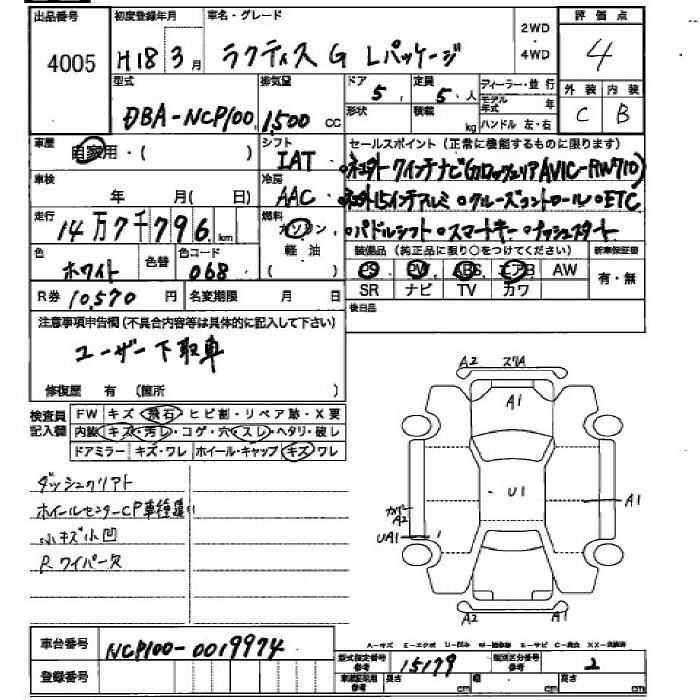 出品番号 初度登録年月 車名・グレード 評価点
4005 H18 3月 ラクティス G Lパッケージ 2WD 4WD 4
型式 排気量 ドア 定員 ディーラー・並行 外装 内装
DBA-NCP100 1,500 cc 5 5 人 モデル年式 年 C B
形状 積載 kg ハンドル 左・右
車歴 シフト セールスポイント (正常に機能するものに限ります)
自家用・( ) IAT
車検 冷房
年 月( 日) AAC
走行 燃料
14万7千796 km ガソリン ・パドルシフト ・スマートキー
色 色替 色コード 軽油 装備品 (純正品に限り○をつけてください) 新車保証書
ホワイト 068 ( ) PS PW ABS エアB AW 有・無
R券 10,570 円 名変期限 月 日 SR ナビ TV カワ
後日品
注意事項申告欄(不具合内容等は具体的に記入して下さい)
ユーザー下取車
修復歴 有 (箇所 )
検査員記入欄 FW キズ・飛石・ヒビ割・リペア跡・X要
内装 キズ・汚レ・コゲ・穴・スレ・ヘタリ・破レ
ドアミラー キズ・ワレ ホイール・キャップ キズ ワレ
ダッシュクリアト
ホイールセンターCP車種違い
小キズ小凹
Rワイパー欠
A2 ズリA
A1
U1
A1
カバー A2
UA1
A2 A1
車台番号 NCP100-0019974
登録番号
型式指定番号 参考 15179 類別区分番号 参考 2
長さ cm 幅 cm 高さ cm